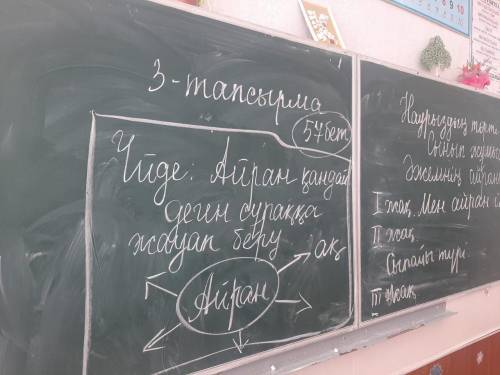 3-тапсырма
57бет
Үйде: Айран қандай
деген сұраққа
жауап беру
ақ
Айран
Наурыздың төрт
Сынып жұмыс
Әжемнің айран
I жақ. Мен айран
II жақ
Сыпайы түрі
III жақ